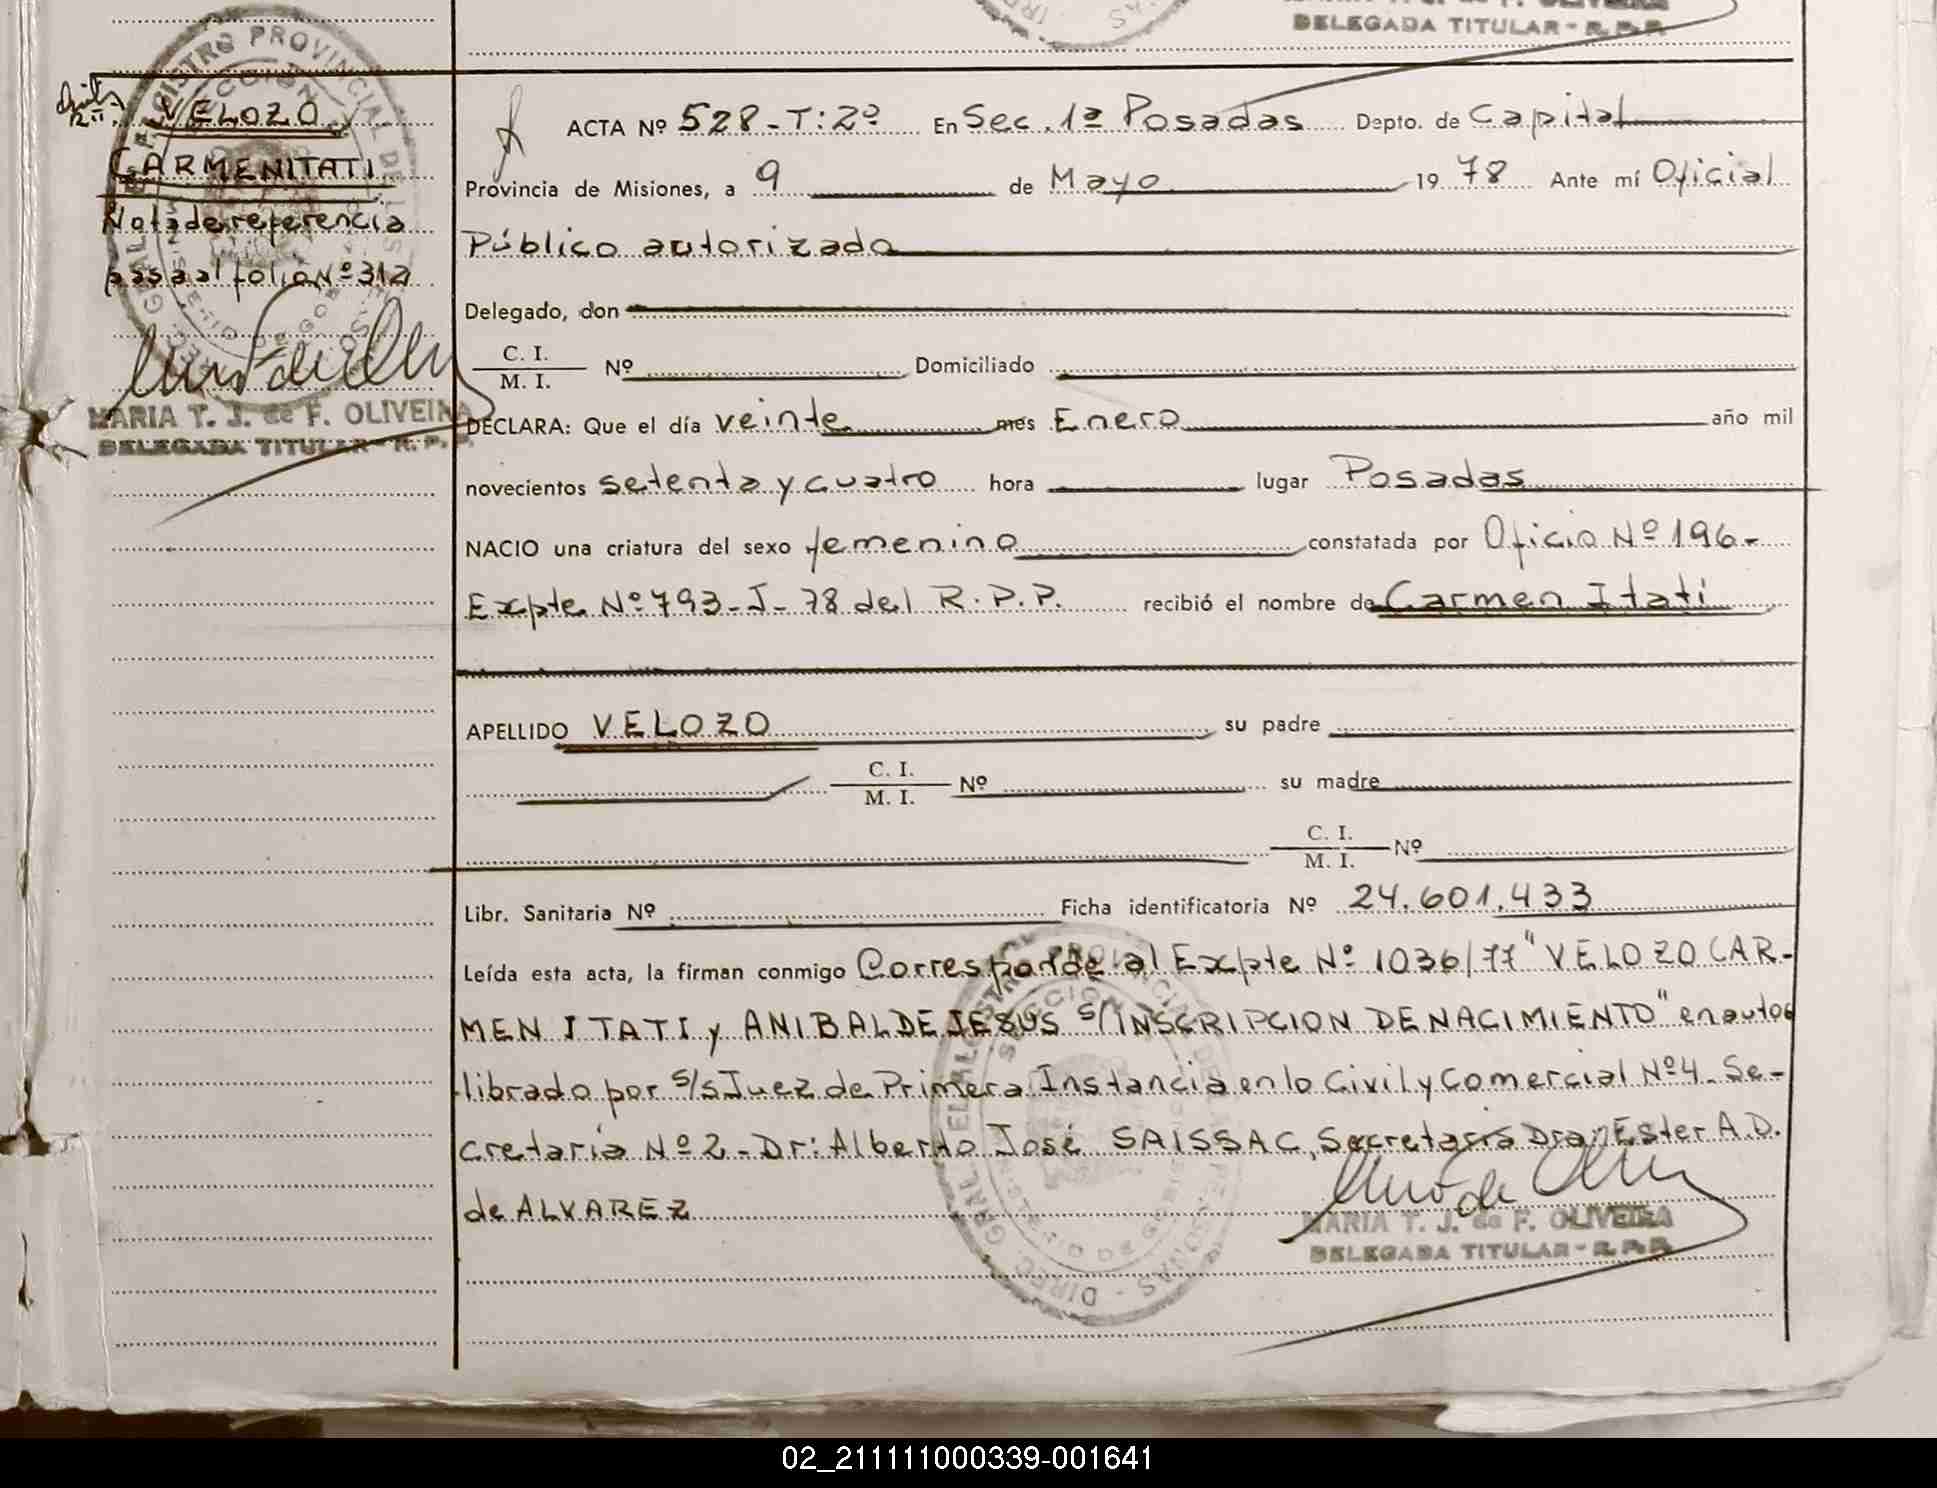 DELEGADA TITULAR - R. P. P.
VELOZO
CARMEN ITATI
Nota de referencia
pasa al folio Nº 312
MARIA T. J. de F. OLIVEIRA
DELEGADA TITULAR - R. P. P.
ACTA Nº 528-T:2º En Sec. 1ª Posadas Depto. de Capital
Provincia de Misiones, a 9 de Mayo 19 78 Ante mí Oficial
Público autorizado
Delegado, don
C. I.
M. I. Nº Domiciliado
DECLARA: Que el día veinte mes Enero año mil
novecientos setenta y cuatro hora lugar Posadas
NACIO una criatura del sexo femenino constatada por Oficio Nº 196-
Expte Nº 793-J-78 del R.P.P. recibió el nombre de Carmen Itati
APELLIDO VELOZO su padre
C. I.
M. I. Nº su madre
C. I.
M. I. Nº
Libr. Sanitaria Nº Ficha identificatoria Nº 24.601.433
Leída esta acta, la firman conmigo Corresponde al Expte Nº 1036/77 "VELOZO CAR-
MEN ITATI y ANIBAL DE JESUS s/INSCRIPCION DE NACIMIENTO" en autos
librado por s/s Juez de Primera Instancia en lo Civil y Comercial Nº 4 - Se-
cretaría Nº 2 - Dr: Alberto José SAISSAC, Secretaria Dra. Ester A.D.
de ALVAREZ
MARIA T. J. de F. OLIVEIRA
DELEGADA TITULAR - R. P. P.
02_211111000339-001641